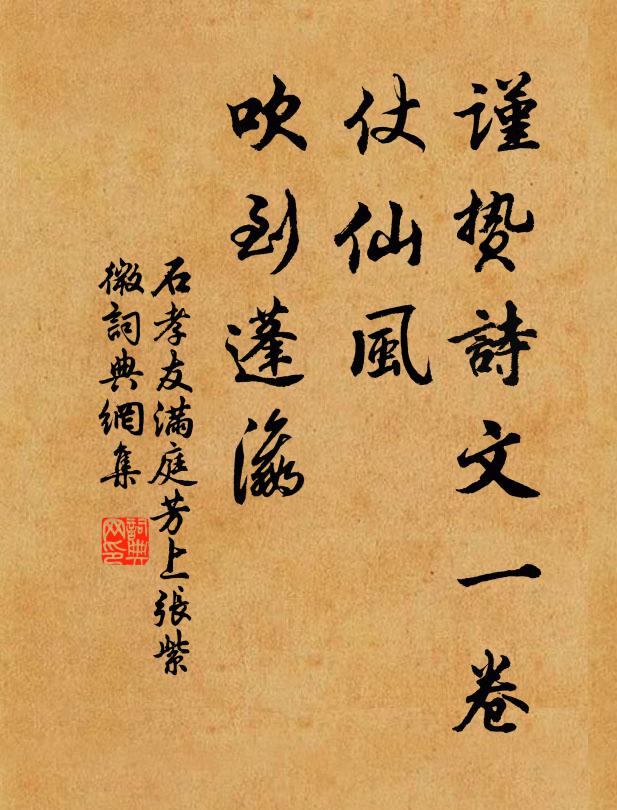 謹贄詩文一卷
仗仙風
吹到蓬瀛
石孝友滿庭芳上張紫
微詞典網集
詞典网印